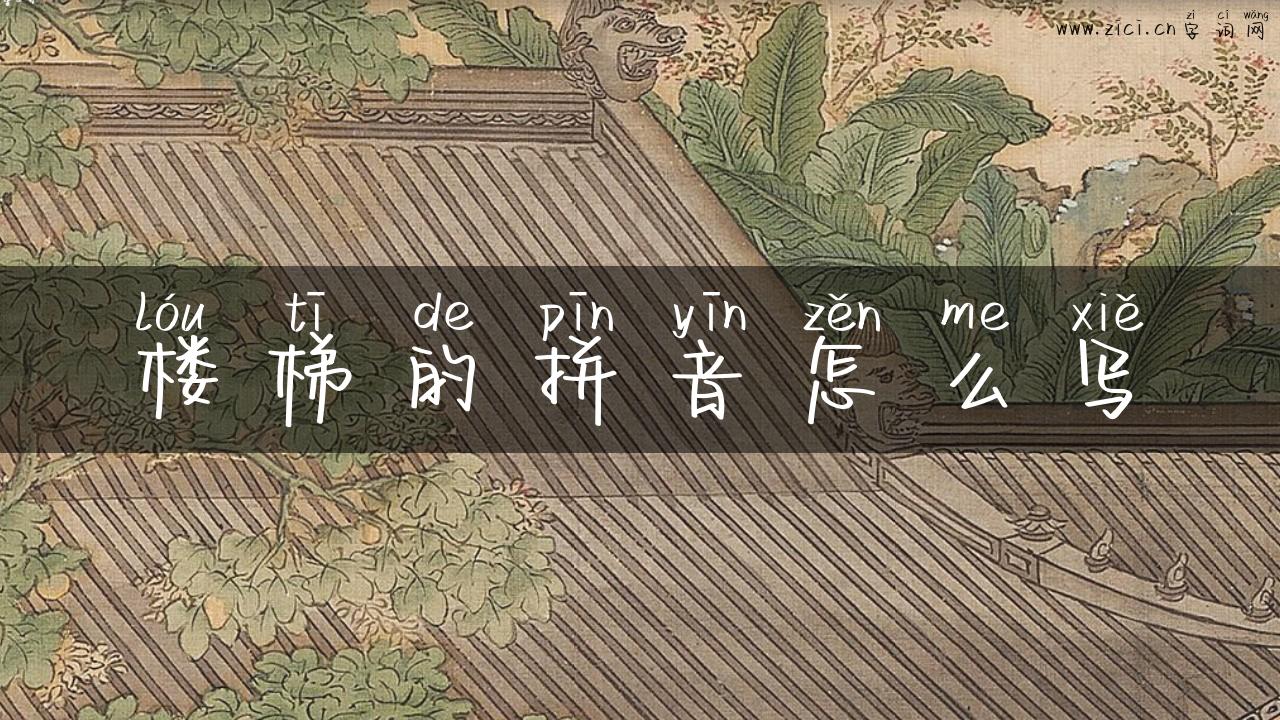 zì cí wǎng
www.zici.cn 字词网
lóu tī de pīn yīn zěn me xiě
楼梯的拼音怎么写